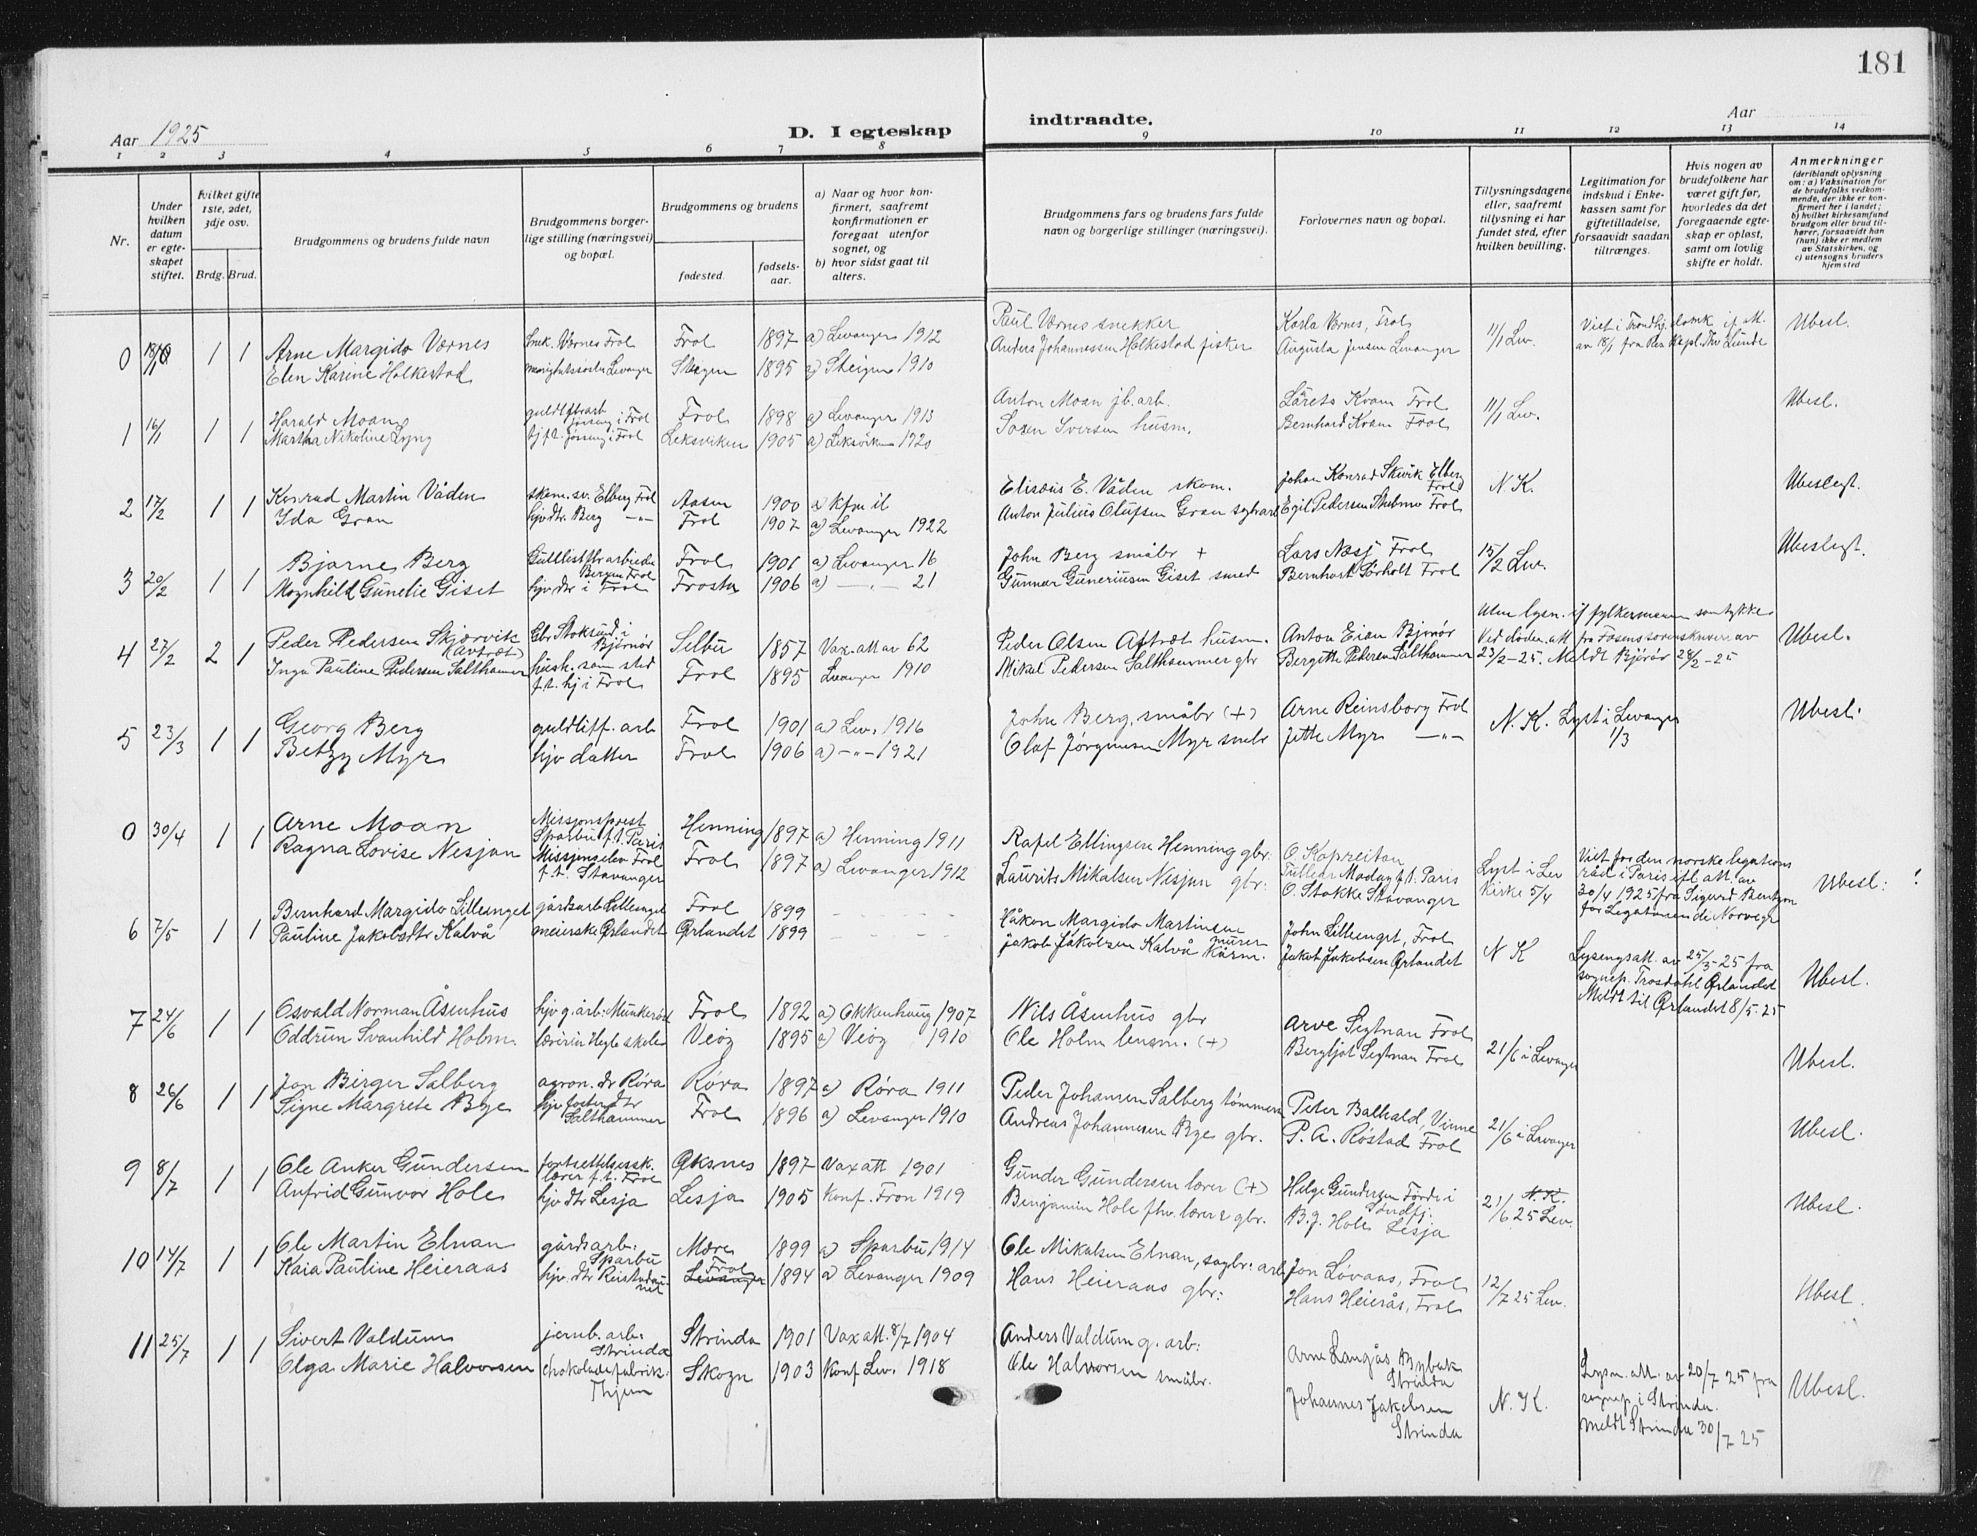 181
Aar 1925
D. I egteskap indtraadte.
Aar
1 2 3 4 5 6 7 8 9 10 11 12 13 14
Nr.
Under hvilken datum er egteskapet stiftet.
hvilket gifte 1ste, 2det, 3dje osv.
Brdg. Brud.
Brudgommens og brudens fulde navn
Brudgommens borgerlige stilling (næringsvei) og bopæl.
Brudgommens og brudens
fødested.
fødselsaar.
a) Naar og hvor konfirmert, saafremt konfirmationen er foregaat utenfor sognet, og
b) hvor sidst gaat til alters.
Brudgommens fars og brudens fars fulde navn og borgerlige stillinger (næringsvei).
Forlovernes navn og bopæl.
Tillysningsdagene eller, saafremt tillysning ei har fundet sted, efter hvilken bevilling.
Legitimation for indskud i Enkekassen samt for giftetilladelse, forsaavidt saadan tiltrænges.
Hvis nogen av brudefolkene har været gift før, hvorledes da det foregaaende egteskap er opløst, samt om lovlig skifte er holdt.
Anmerkninger (deriblandt oplysning om: a) Vaksination for de brudefolks vedkommende, der ikke er konfirmert her i landet; b) hvilket kirkesamfund brudgom eller brud tilhører, forsaavidt han (hun) ikke er medlem av Statskirken, og c) utensogns bruders hjemsted
0 1 1 Arne Margido Værnes Snek. Værnes Frol Frol 1897 a) Levanger 1912 Paul Værnes snekker Karla Værnes, Frol 11/1 Lev. Ubesl.
Elen Karine Holkestad Levanger Steigen 1895 a) Steigen 1910 Anders Johannessen Holkestad fisker Augusta Jensen Levanger
1 16/1 1 1 Harald Moan Frol 1898 a) Levanger 1913 Anton Moan jb. arb. Lårets Kvam Frol 11/1 Lev. Ubesl.
Martha Nikoline Lyng Leksviken 1905 a) Leksviken 1920 Iversen husm. Bernhard Kvam Frol
2 17/2 1 1 Konrad Martin Våden skom. sv. Elberg Frol Aasen 1900 Elisæus E. Våden skom. Johan Konrad Skevik Elberg Frol N. K. Ubeslegt.
Ida Gran hjv dtr. Berg —"— Frol 1907 a) Levanger 1922 Anton Julius Olufsen Gran Egil Pedersen Frol
3 20/2 1 1 Bjarne Berg Gullistfbr arbeider Bergum Frol Frol 1901 a) Levanger 16 John Berg småbr + Lars Næsj Frol 15/2 Lev. Ubeslegt.
Magnhild Gunelie Giset hjv dtr i Frol Frosta 1906 a) — . — 21 Gunnar Guneriusen Giset smed Bernhard Sørholt Frol
4 27/2 2 1 Peder Pedersen Skjærvik (Avtræt) Gbr Stoksund i Bjørnør Selbu 1857 Vax. att av 62 Peder Olsen Aftræt husm. Anton Eian Bjørnør Uten lysn. if fylkesmannens samtykke Ubesl.
Inga Pauline Pedersen Salthammer hush. sam sted f. t. hj i Frol Frol 1895 Levanger 1910 Mikal Pedersen Salthammer gbr Bergitte Pedersen Salthammer 23/2-25. Meldt Bjørnør 28/2-25
5 23/3 1 1 Georg Berg guldliff. arb Frol 1901 a) Lev. 1916 John Berg, småbr (+) Arne Reinsborg Frol N. K. Lyst i Levanger 1/3 Ubesl.
Betzy Myr hjv datter Frol 1906 a) —"— 1921 Olaf Jørgensen Myr Jette Myr —"—
0 30/4 1 1 Arne Moan Missjonsprest Sparbu f. t. Paris Henning 1897 a) Henning 1911 Rafel Ellingsen Henning gbr. O. Kapreitan Lyst i Lev Kirke 5/4 Viet for den norske legationsråd i Paris ifl. att. av Ubesl: !
Ragna Lovise Nesjan Missjonselev Frol f. t. Stavanger Frol 1897 a) Levanger 1912 Laurits Mikalsen Nesjan gbr: f. t. Paris O. Stokke Stavanger 30/4 1925 fra Sigurd Bentzon for Legationen de Norvege
6 7/5 1 1 Bernhard Margido Lillesnget gårdsarb. Lillesnget Frol 1899 Håkon Margido Martinsen murer John Lillesnget, Frol N K Lysingsatt. av 25/3-25 fra Ubesl.
Pauline Jakobsdtr Kalvå meierske Ørlandet Ørlandet 1899 Jakob Jakobsen Kalvå Jakob Jakobsen Ørlandet sognep. Trosdahl Ørlandet Meldt til Ørlandet 8/5-25
7 24/6 1 1 Osvald Norman Åsenhus hjv g. arb. Munkerøst Frol 1892 a) Okkenhaug 1907 Nils Åsenhus gbr Arve Segtnan Frol 21/6 i Levanger Ubesl.
Oddrun Svanhild Holm lærerin Hegle skole Veøy 1895 a) Veøy 1910 Ole Holm lensm. (+) Bergljot Segtnan Frol
8 26/6 1 1 Jon Birger Salberg agron. dr Røra Røra 1897 a) Røra 1911 Peder Johansen Salberg tømmerm Peter Balhald, Vinne 21/6 i Levanger Ubesl.
Signe Margrete Bye hjv fosterdtr Salthammer Frol 1896 a) Levanger 1910 Andreas Johannesen Bye gbr. P. A. Røstad Frol
9 8/7 1 1 Ole Anker Gundersen fortsettelsessk. lærer f. t. Frol Øksnes 1897 Vaxatt 1901 Gunder Gundersen lærer (+) Helge Gundersen Førde i Sundfj. N. K. 21/6 25 Lev. Ubesl.
Anfrid Gunvor Hole hjv dtr Lesja Lesja 1905 Konf. Fron 1919 Benjamin Hole fhv. lærer & gbr. B. J. Hole Lesja
10 14/7 1 1 Ole Martin Elnan gårdsarb. Sparbu Mære 1899 a) Sparbu 1914 Ole Mikalsen Elnan, sagbr. arb Jon Løvaas, Frol 12/7 25 Lev. Ubesl.
Kaia Pauline Heieraas hjv. dtr Reistad Frol Levanger 1894 a) Levanger 1909 Hans Heieraas gbr: Hans Heierås, Frol
11 25/7 1 1 Sivert Valdum jernb. arb. Strinda Strinda 1901 Vaxatt. 8/7 1904 Anders Valdum g. arb: Arne Langås Strinda N. K. Lysn. att. av 20/7 25 fra Ubesl.
Olga Marie Halvorsen chokoladefabrik. Thjem Skogn 1903 Konf Lev. 1918 Ole Halvorsen småbr. Johannes Jakobsen Strinda sognep i Strinda. meldt Strinda 30/7 25